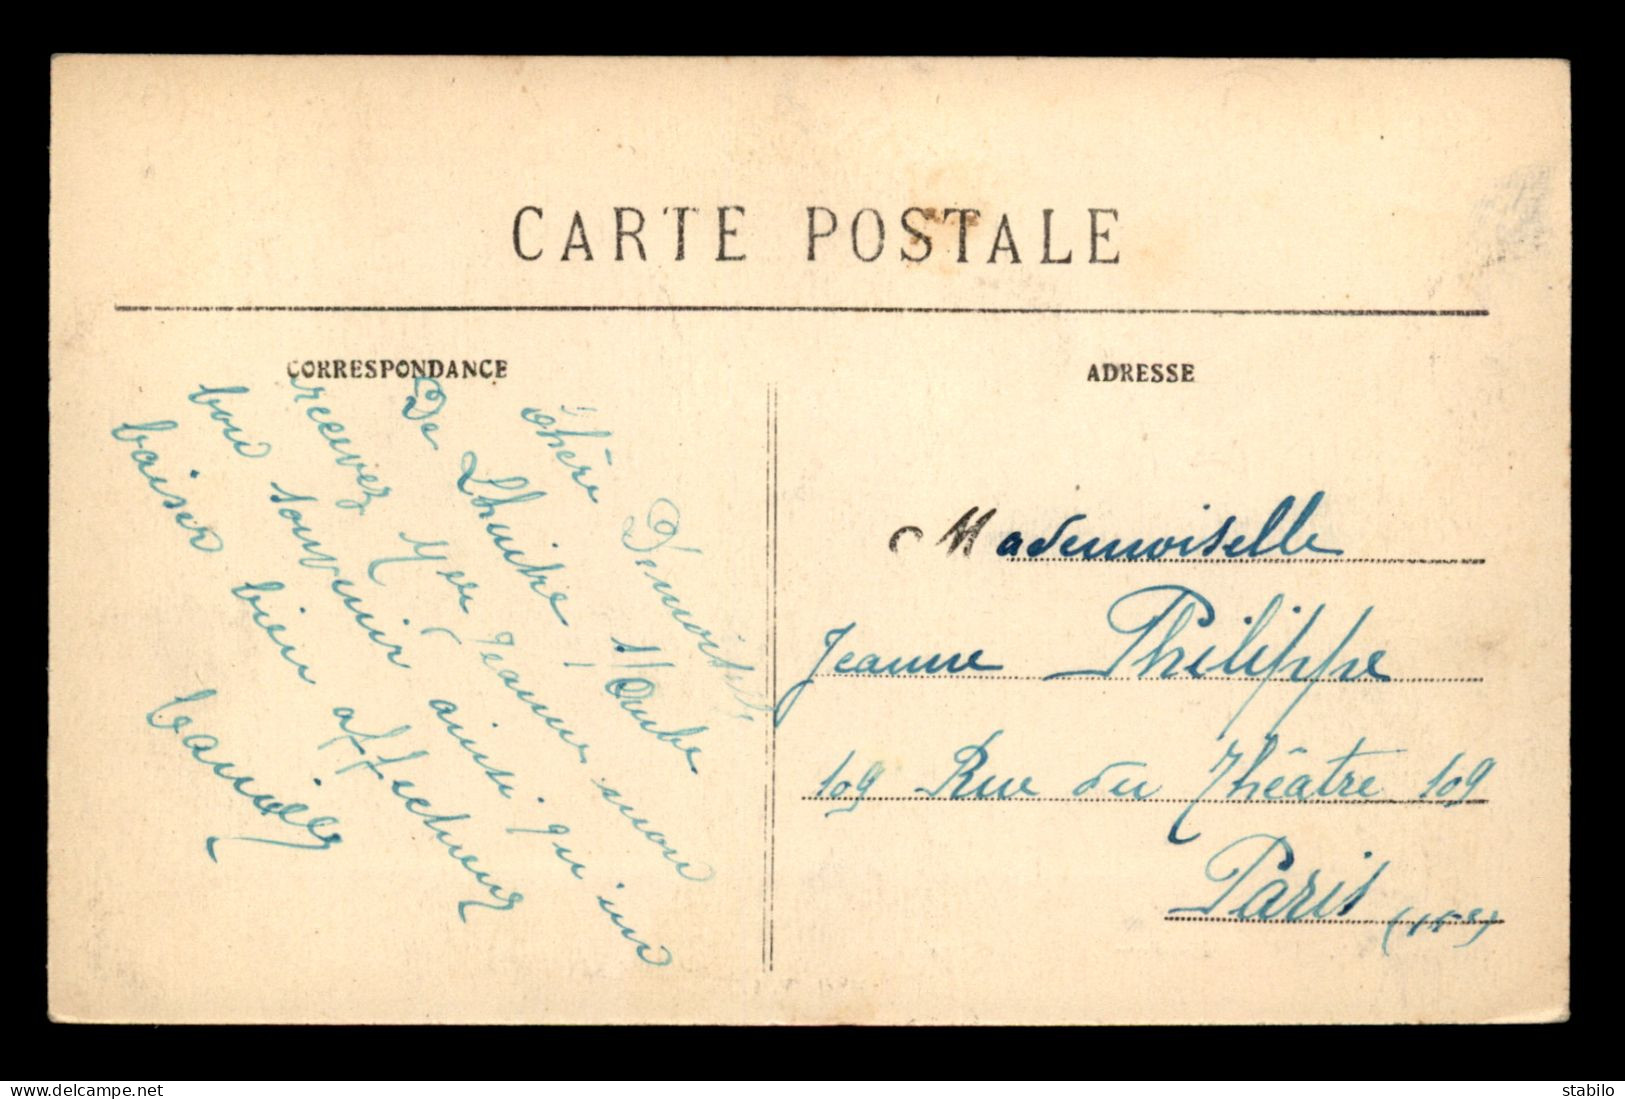 CARTE POSTALE
CORRESPONDANCE
ADRESSE
Chère Demoiselle
De Lhuitre /Aube
recevez Mer Jeanne mon
bon souvenir ainsi qu'un
baiser bien affectueux
Camille
Mademoiselle
Jeanne Philippe
109 Rue du Théâtre 109
Paris (15e)
delcampe.net
stabilo